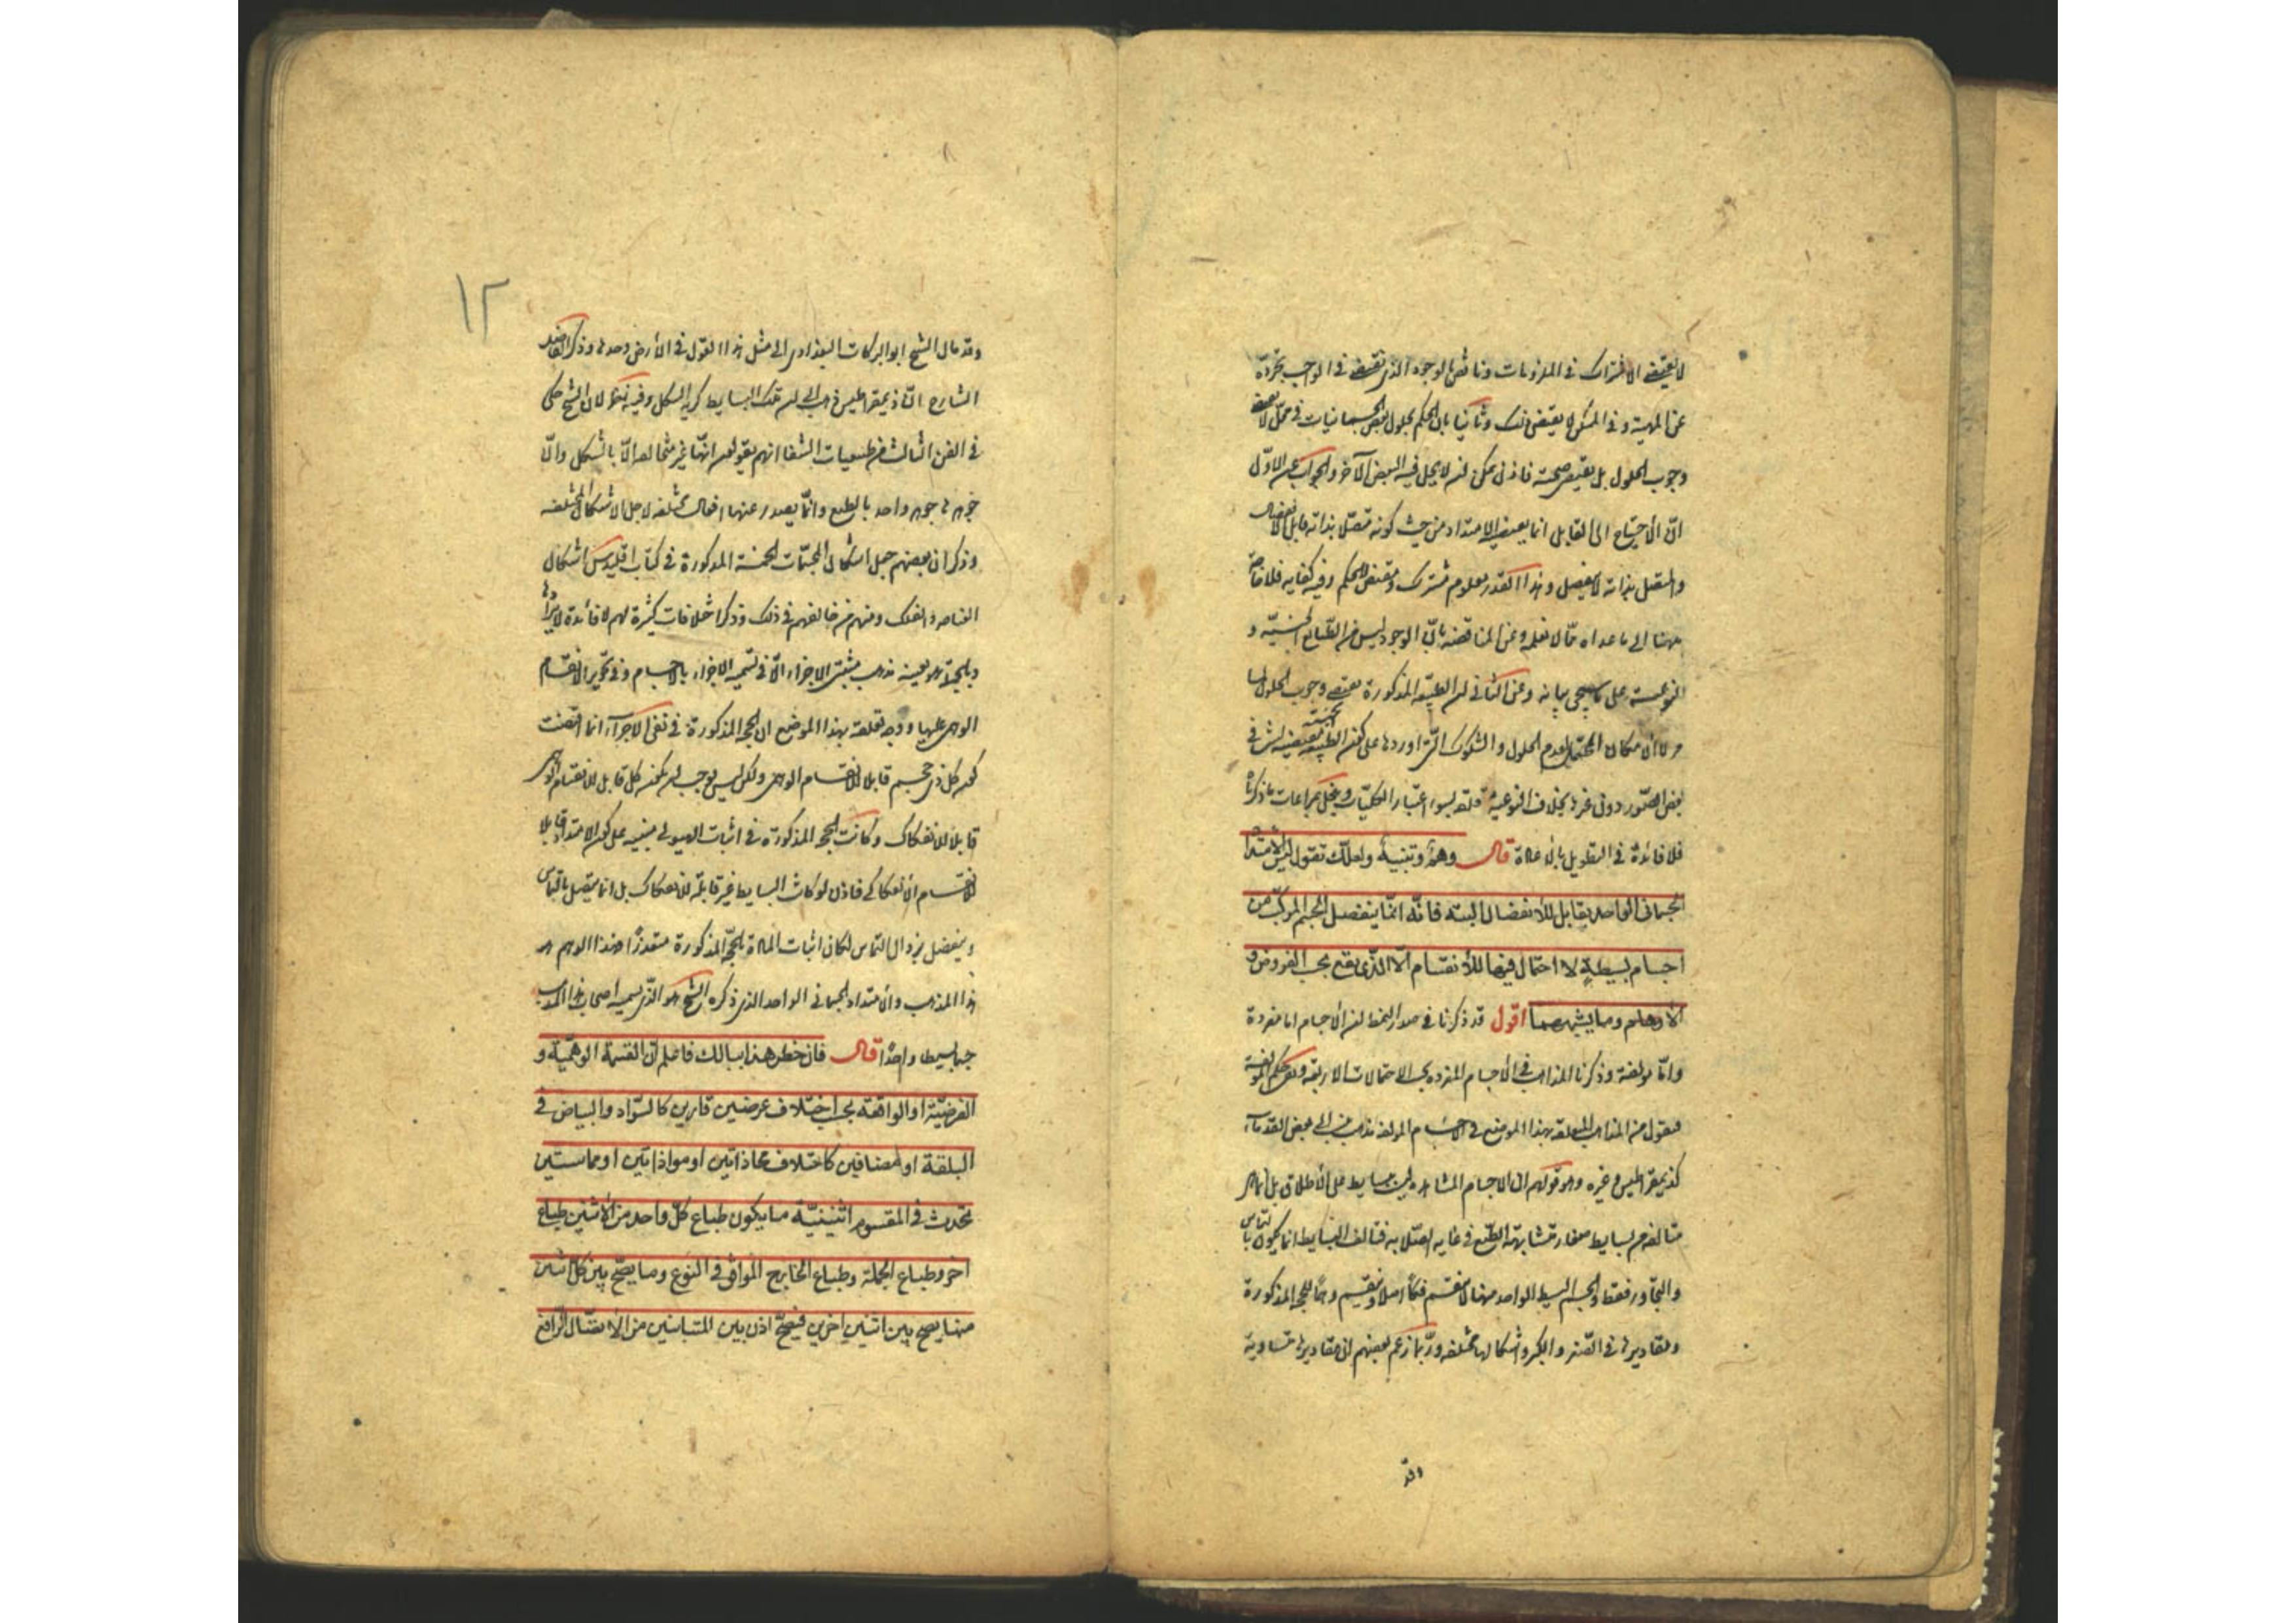 لا يقتضى الاشتراك فى الملزومات وناقض بالوجود الذى يقتضى فى الواجب تجرده
عن المهية وفى الممكن لا يقتضى ذلك وثانيا بان الحكم بحلول بعض الجسمانيات فى محل لا يقتضى
وجوب الحلول بل يقتضى صحته فاذن يمكن ان لا يحل فيه البعض الآخر والجواب عن الاول
ان الاحتياج الى القابل انما يقتضيه الامتداد من حيث كونه متصلا بذاته قابلا للانفصال
والمتصل بذاته لا ينفصل وهذا القدر معلوم مشترك ومقتض للحكم وفيه كفاية فلا حاجة
ههنا الى ما عداه مما لا نعلمه وعن المناقضة بان الوجود ليس من الطبايع الجنسية و
النوعية على ما سيجى بيانه وعن الثانى ان الطبيعة المذكورة تقتضى وجوب الحلول لما
مر لا امكان المحتمل لعدم الحلول والشكوك التى اوردها على كون الطبيعة الجنسية مقتضية لشئ فى
بعض الصور دون غيرها بخلاف النوعية متعلقة بسوء اعتبار الكليات وينحل بمراعات ما ذكرناه
فلا فائدة فى التطويل بالاعادة قال وهم وتنبيه ولعلك تقول ليس الامتداد
الجسمانى الواحد بقابل للانفصال البتة فانه انما ينفصل الجسم المركب من
اجسام بسيطة لا احتمال فيها للانقسام الا الذى يقع بحسب الفروض و
الاوهام وما يشبههما اقول قد ذكرنا فى صدر النمط ان الاجسام اما مفردة
واما مؤلفة وذكرنا المذاهب فى الاجسام المفردة بحسب الاحتمالات الاربعة وبقى حكم المؤلفة
فنقول من المذاهب المتعلقة بهذا الموضع فى الاجسام المؤلفة مذهب ينسب الى بعض القدماء
كذيمقراطيس وغيره وهو قولهم ان الاجسام المشاهدة ليست ببسايط على الاطلاق بل انما هى
متألفة من بسايط صغار متشابهة الطبع فى غاية الصلابة فتألف البسايط انما يكون بالتماس
والتجاور فقط والجسم البسيط الواحد منها لا ينقسم فكا اصلا وينقسم وهما للحجة المذكورة
ومقاديرها فى الصغر والكبر واشكالها مختلفة وربما زعم بعضهم ان مقاديرها متساوية
وقد
١٢
وقد مال الشيخ ابو البركات البغدادى الى مثل هذا القول فى الارض وحدها وذكر الفاضل
الشارح ان ذيمقراطيس ذهب الى ان تلك البسايط كرية الشكل وفيه نظر لان الشيخ حكى
فى الفن الثالث من طبيعيات الشفا انهم يقولون انها غير متخالفة الا بالشكل وان
جوهرها جوهر واحد بالطبع وانما يصدر عنها افعال مختلفة لاجل الاشكال المختلفة
وذكر ان بعضهم جعل اشكال المجسمات الخمسة المذكورة فى كتاب اقليدس اشكال
العناصر والفلك ومنهم من خالفهم فى ذلك وذكر اختلافات كثيرة لهم لا فائدة لايرادها
وبالجملة هو بعينه مذهب مثبتى الاجزاء الا فى تسمية الاجزاء بالاجسام وفى تجويز الانقسام
الوهمى عليها ووجه تعلقه بهذا الموضع ان الحجة المذكورة فى نفى الاجزاء انما اقتضت
كون كل ذى حجم قابلا للانقسام الوهمى ولكن ليس بواجب ان يكون كل قابل للانقسام الوهمى
قابلا للانفكاك وكانت الحجة المذكورة فى اثبات الهيولى مبنية على كون الامتداد قابلا
للانقسام الانفكاكى فاذن لو كانت البسايط غير قابلة للانفكاك بل انما يتصل بالتماس
وينفصل بزوال التماس لكان اثبات المادة بالحجة المذكورة متعذرا فهذا الوهم هو
هذا المذهب والامتداد الجسمانى الواحد الذى ذكره الشيخ هو الذى يسميه اصحاب هذا المذهب
جسما بسيطا واحدا قال فان خطر هذا ببالك فاعلم ان القسمة الوهمية و
الفرضية او الواقعة بحسب اختلاف عرضين قارين كالسواد والبياض فى
البلقة او مضافين كاختلاف محاذاتين او موازاتين او مماستين
تحدث فى المقسوم اثنينية ما يكون طباع كل واحد من الاثنين طباع
اخر وطباع الجملة وطباع الخارج الموافق فى النوع وما يصح بين كل اثنين
منها يصح بين اثنين اخرين فيصح اذن بين المتباينين من الاتصال الرافع